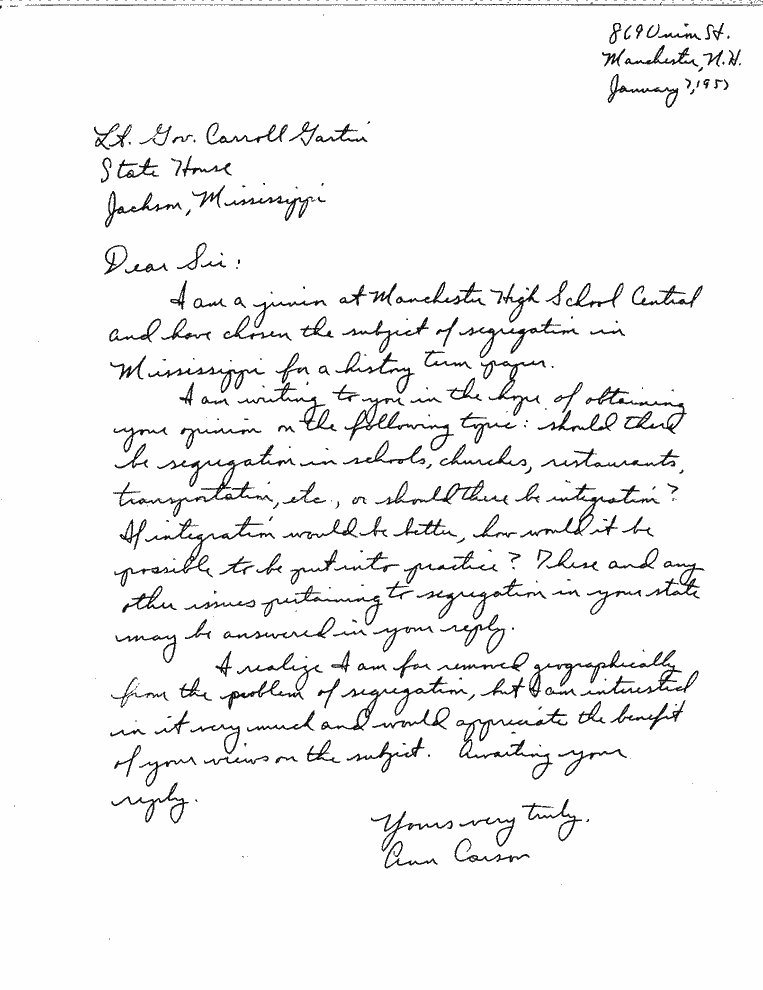 869 Union St.
Manchester, N.H.
January 7, 1957
Lt. Gov. Carroll Gartin
State House
Jackson, Mississippi
Dear Sir:
I am a junior at Manchester High School Central
and have chosen the subject of segregation in
Mississippi for a history term paper.
I am writing to you in the hope of obtaining
your opinion on the following topic: should there
be segregation in schools, churches, restaurants,
transportation, etc., or should there be integration?
If integration would be better, how would it be
possible to be put into practice? These and any
other issues pertaining to segregation in your state
may be answered in your reply.
I realize I am far removed geographically
from the problem of segregation, but I am interested
in it very much and would appreciate the benefit
of your views on the subject. Awaiting your
reply.
Yours very truly,
Ann Carson